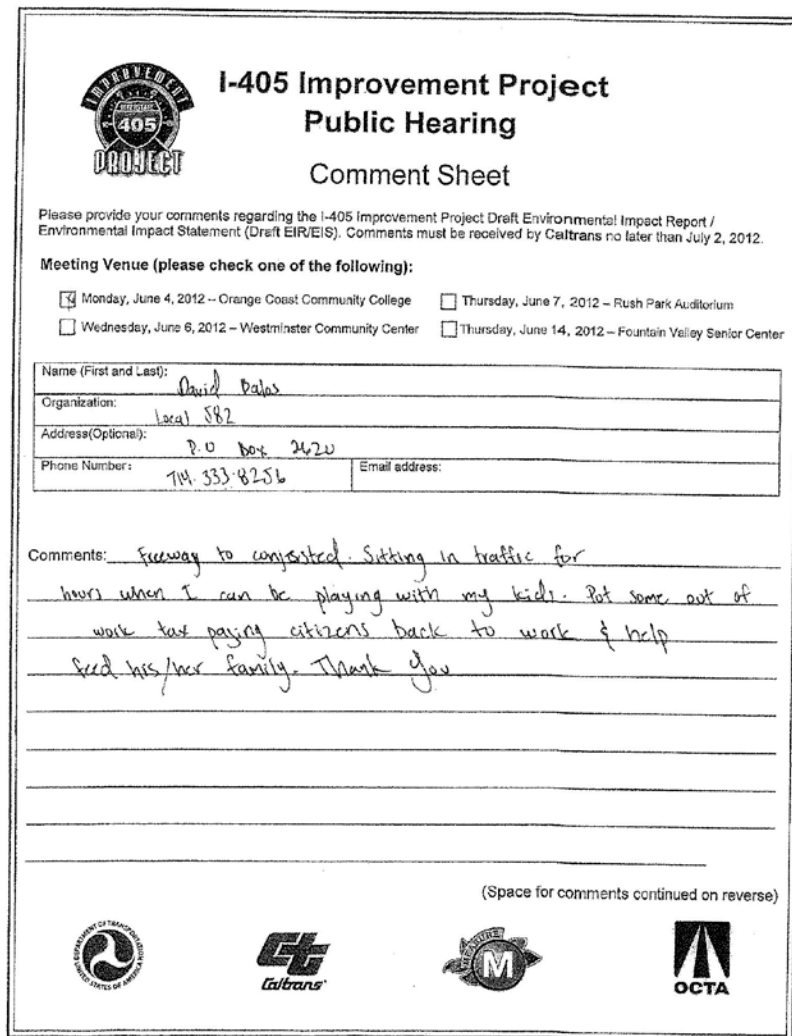 IMPROVEMENT
INTERSTATE
405
PROJECT
I-405 Improvement Project
Public Hearing
Comment Sheet
Please provide your comments regarding the I-405 Improvement Project Draft Environmental Impact Report /
Environmental Impact Statement (Draft EIR/EIS). Comments must be received by Caltrans no later than July 2, 2012.
Meeting Venue (please check one of the following):
Monday, June 4, 2012 – Orange Coast Community College
Thursday, June 7, 2012 – Rush Park Auditorium
Wednesday, June 6, 2012 – Westminster Community Center
Thursday, June 14, 2012 – Fountain Valley Senior Center
Name (First and Last): David
Organization: Local 582
Address(Optional): P.O Box 2620
Phone Number: 714.333.8256
Email address:
Comments: Freeway to conjested. Sitting in traffic for
hours when I can be playing with my kids. Put some out of
work tax paying citizens back to work & help
feed his/her family. Thank You
(Space for comments continued on reverse)
DEPARTMENT OF TRANSPORTATION
UNITED STATES OF AMERICA
Ct
Caltrans
MEASURE
M
OCTA